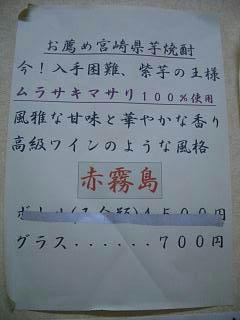 お薦め宮崎県芋焼酎
今！入手困難、紫芋の王様
ムラサキマサリ１００％使用
風雅な甘味と華やかな香り
高級ワインのような風格
赤霧島
グラス．．．．．．７００円